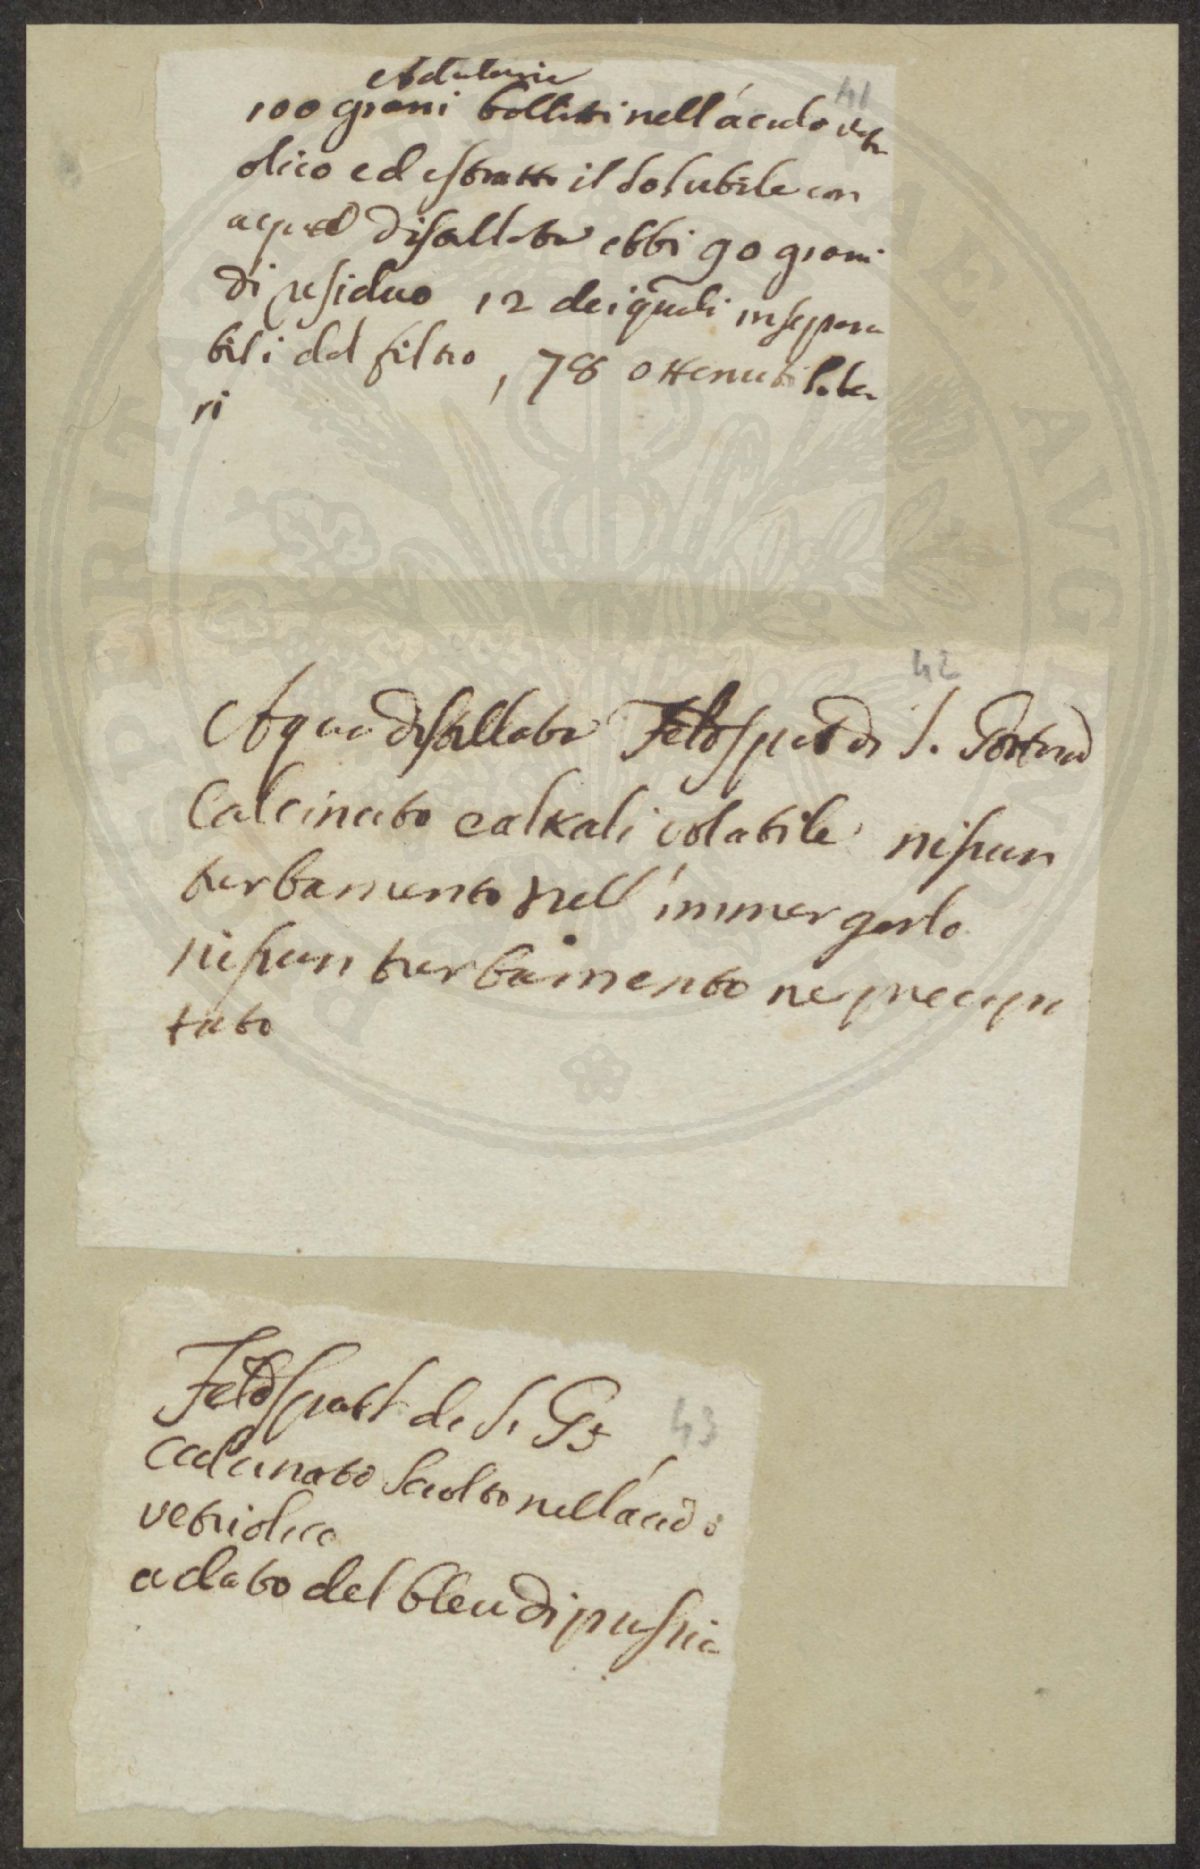 41
Adularia
100 grani bolliti nell'acido vetri
olico ed estratto il solubile con
acqua distillata ebbi 90 grani
di residuo 12 dei quali insepara
bili dal filtro, 78 ottenuti libe
ri
42
Aqua distillata Feldspat di S. Gottard
Calcinato ealkali volatile nissun
turbamento nell'immergerlo
nissun turbamento ne precipi
tato
43
Feldspatt de S. G
calcinato sciolto nell'acido
vetriolico
a dato del bleu di prussia